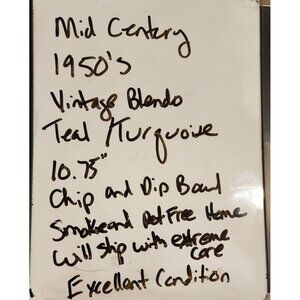 Mid Century
1950's
Vintage Blendo
Teal / Turquoise
10.75"
Chip and Dip Bowl
Smoke and Pet Free Home
Will ship with extreme
care
Excellent Condition